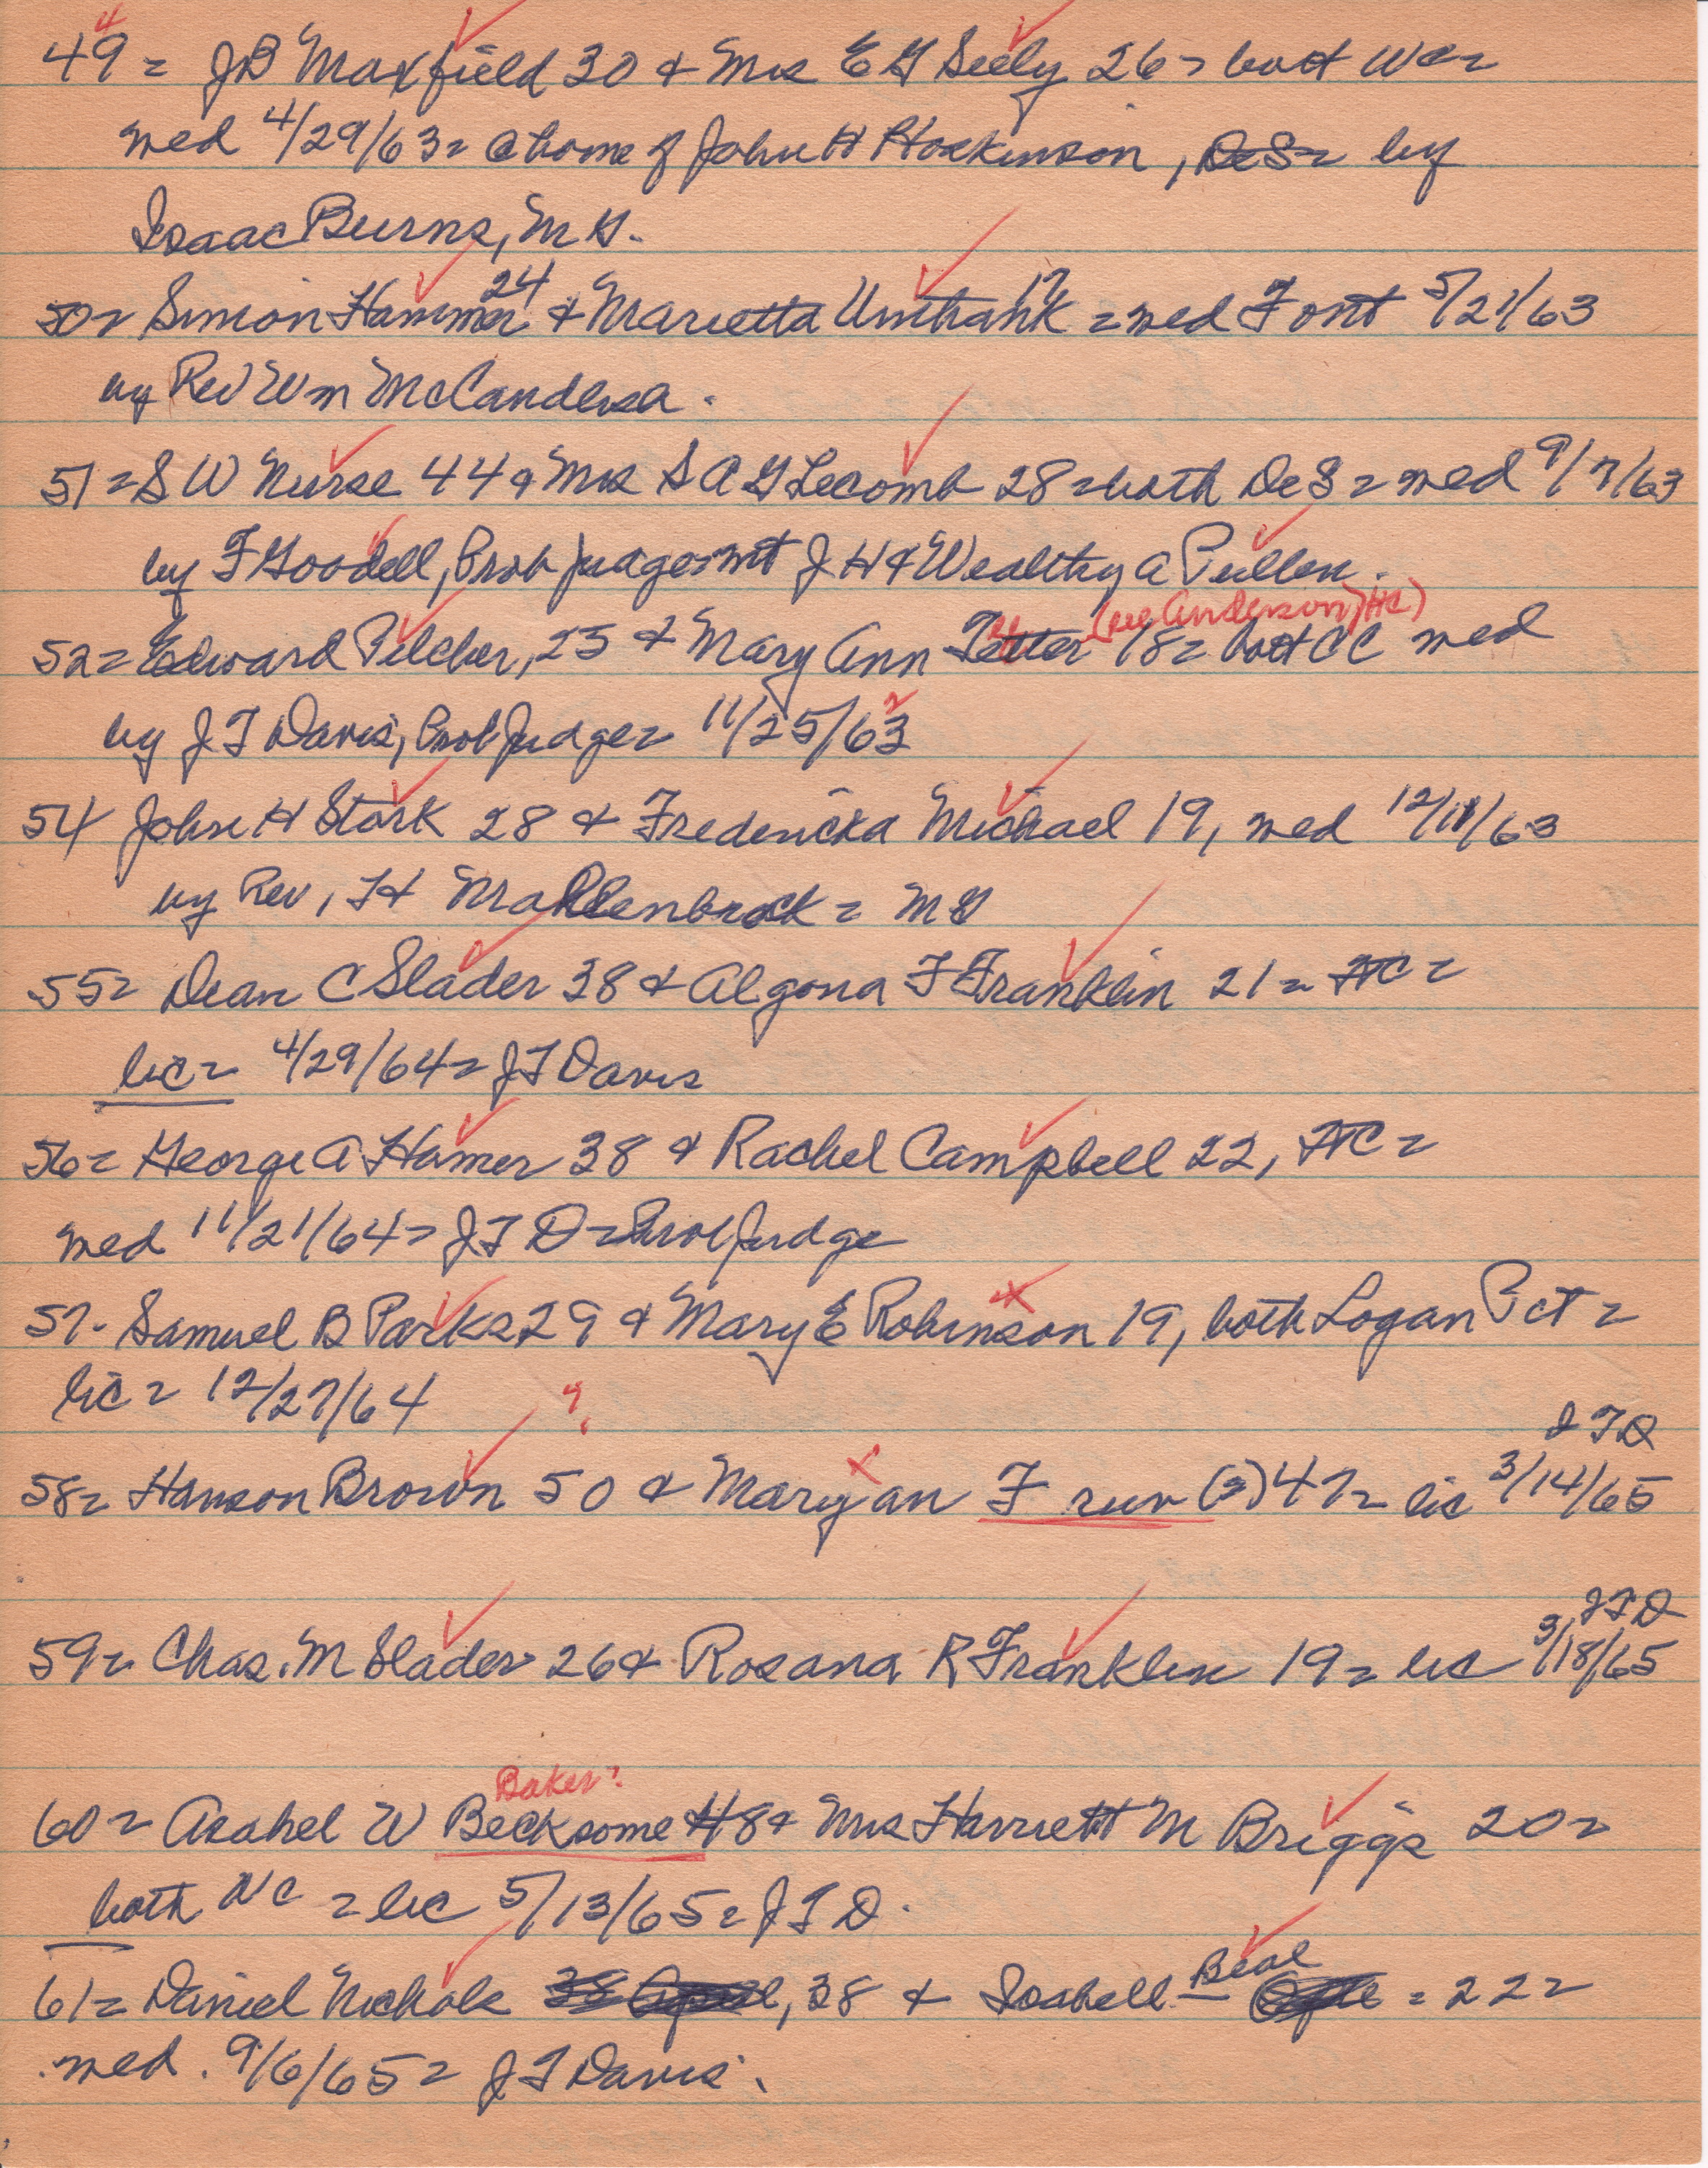 49 = JB Maxfield 30 & Mrs E G Seely 26 = both WC =
med 4/29/63 = @ home of John H Hoskinson, DeS = by
Isaac Burns, M G.
50 = Simon Hammer 24 & Marietta 17 = med Font 5/21/63
by Rev Wm McCandless.
51 = S W Nurse 44 & Mrs S A G Lecomb 28 = both De S = med 9/7/63
by F Goodell, Prob Judge = Wit J H & Wealthy A Pullen.
(see Anderson) HC)
52 = Edward Pilcher, 25 & Mary Ann 18 = both CC med
by J F Davis, Prob Judge = 11/25/63
54 John H Stork 28 & Fredericka Michael 19, med 12/11/63
by Rev, H = M G
55 = Dean C Slader 38 & Algona F Franklin 21 = FC =
lic = 4/29/64 = J F Davis
56 = George A Hamer 38 & Rachel Campbell 22, FC =
med 11/21/64 = J F D = Prob Judge
57 - Samuel B Parks 29 & Mary E Robinson 19, both Logan Pct =
lic = 12/27/64 ?
J F D
58 = Hanson Brown 50 & Mary an F run (?) 47 = lic 3/14/65
J F D
59 = Chas. M Slader 26 & Rosana R Franklin 19 = lic 3/18/65
Baker?
60 = Asahel W Becksome 48 & Mrs Harriett M Briggs 20 =
both NC = lic 5/13/65 = J F D.
61 = Daniel Nichols, 38 & Isabell Beal = 22 =
med. 9/6/65 = J F Davis.